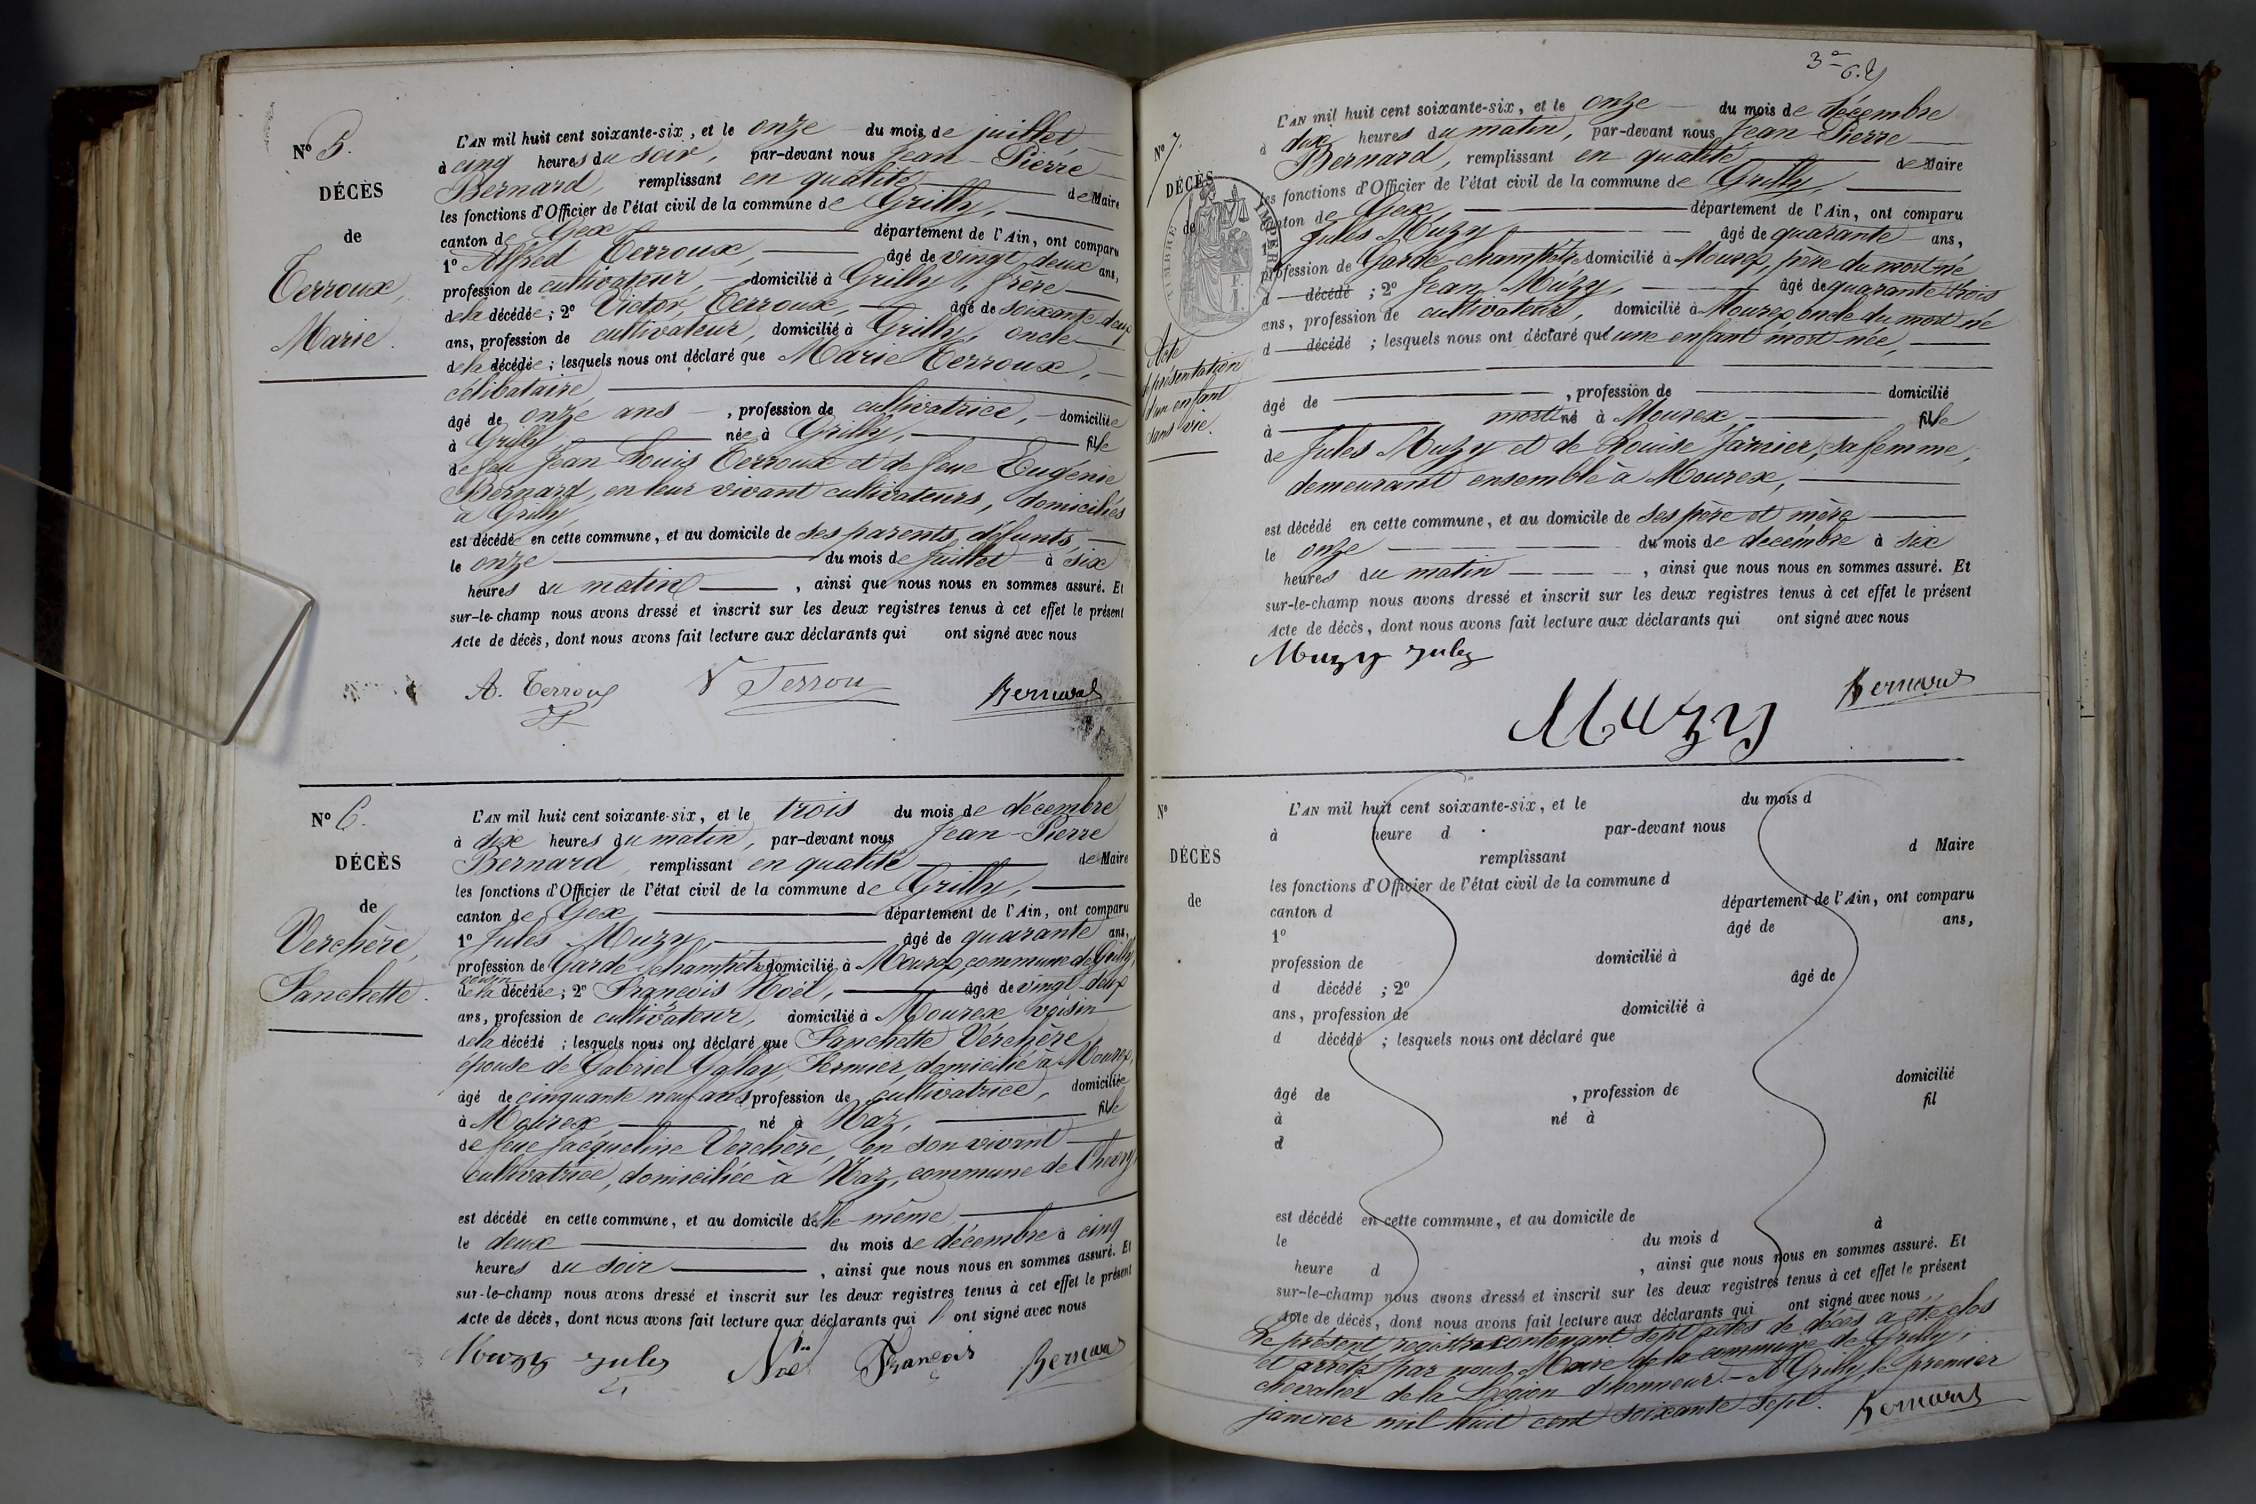 N° 5.
DÉCÈS
de
Terroux,
Marie.
L'AN mil huit cent soixante-six, et le onze du mois de juillet,
à cinq heures du soir, par-devant nous Jean-Pierre
Bernard, remplissant en qualité de Maire
les fonctions d'Officier de l'état civil de la commune de Grilly,
canton de Gex, département de l'Ain, ont comparu
1° Alfred Terroux, âgé de vingt deux ans,
profession de cultivateur, domicilié à Grilly, frère
de la décédée; 2° Victor Terroux, âgé de soixante deux
ans, profession de cultivateur, domicilié à Grilly, oncle
de la décédée; lesquels nous ont déclaré que Marie Terroux,
célibataire,
âgé de onze ans, profession de cultivatrice, domiciliée
à Grilly, née à Grilly, fille
de feu Jean Louis Terroux et de feue Eugénie
Bernard, en leur vivant cultivateurs, domiciliés
à Grilly,
est décédé en cette commune, et au domicile de ses parents défunts
le onze du mois de juillet à six
heures du matin, ainsi que nous nous en sommes assuré. Et
sur-le-champ nous avons dressé et inscrit sur les deux registres tenus à cet effet le présent
Acte de décès, dont nous avons fait lecture aux déclarants qui ont signé avec nous
A. Terroux V Terrou Bernard
N° 6.
DÉCÈS
de
Verchère,
Fanchette.
L'AN mil huit cent soixante-six, et le trois du mois de décembre
à dix heures du matin, par-devant nous Jean-Pierre
Bernard, remplissant en qualité de Maire
les fonctions d'Officier de l'état civil de la commune de Grilly,
canton de Gex, département de l'Ain, ont comparu
1° Jules Muzy, âgé de quarante ans,
profession de Garde champêtre domicilié à Mourex commune de Grilly,
voisin
de la décédée; 2° François Noël, âgé de vingt-deux
ans, profession de cultivateur, domicilié à Mourex voisin
de la décédé; lesquels nous ont déclaré que Fanchette Verchère
épouse de Gabriel Gallay, Fermier, domicilié à Mourex,
âgé de cinquante neuf ans, profession de cultivatrice, domiciliée
à Mourex, né à Naz, fille
de feue Jacqueline Verchère, en son vivant
cultivatrice, domiciliée à Naz, commune de Chevry,
est décédé en cette commune, et au domicile de le même
le deux du mois de décembre à cinq
heures du soir, ainsi que nous nous en sommes assuré. Et
sur-le-champ nous avons dressé et inscrit sur les deux registres tenus à cet effet le présent
Acte de décès, dont nous avons fait lecture aux déclarants qui ont signé avec nous
Mouzy jules Noel François Bernard
3e
N° 7.
DÉCÈS
de
TIMBRE IMPERIAL
Acte
de présentation
d'un enfant
sans vie.
L'AN mil huit cent soixante-six, et le onze du mois de décembre
à dix heures du matin, par-devant nous Jean-Pierre
Bernard, remplissant en qualité de Maire
les fonctions d'Officier de l'état civil de la commune de Grilly,
canton de Gex, département de l'Ain, ont comparu
1° Jules Muzy âgé de quarante ans,
profession de Garde-champêtre domicilié à Mourex, père du mort-né
d décédé; 2° Jean Muzy, âgé de quarante trois
ans, profession de cultivateur, domicilié à Mourex oncle du mort né
d décédé; lesquels nous ont déclaré que une enfant mort-née,
âgé de , profession de domicilié
à mort né à Mourex, fille
de Jules Muzy et de Louise Janier, sa femme,
demeurant ensemble à Mourex,
est décédé en cette commune, et au domicile de ses père et mère
le onze du mois de decembre à six
heures du matin, ainsi que nous nous en sommes assuré. Et
sur-le-champ nous avons dressé et inscrit sur les deux registres tenus à cet effet le présent
Acte de décès, dont nous avons fait lecture aux déclarants qui ont signé avec nous
Muzy jules
Muzy Bernard
N°
DÉCÈS
de
L'AN mil huit cent soixante-six, et le du mois d
à heure d par-devant nous
remplissant d Maire
les fonctions d'Officier de l'état civil de la commune d
canton d département de l'Ain, ont comparu
1° âgé de ans,
profession de domicilié à
d décédé ; 2° âgé de
ans, profession de domicilié à
d décédé ; lesquels nous ont déclaré que
âgé de , profession de domicilié
à né à fil
d
est décédé en cette commune, et au domicile de
le du mois d à
heure d , ainsi que nous nous en sommes assuré. Et
sur-le-champ nous avons dressé et inscrit sur les deux registres tenus à cet effet le présent
Acte de décès, dont nous avons fait lecture aux déclarants qui ont signé avec nous
Le présent registre contenant sept actes de décès a été clos
et arrêté par nous Maire de la commune de Grilly,
chevalier de la Légion d'honneur. - A Grilly, le premier
janvier mil huit cent soixante sept. Bernard